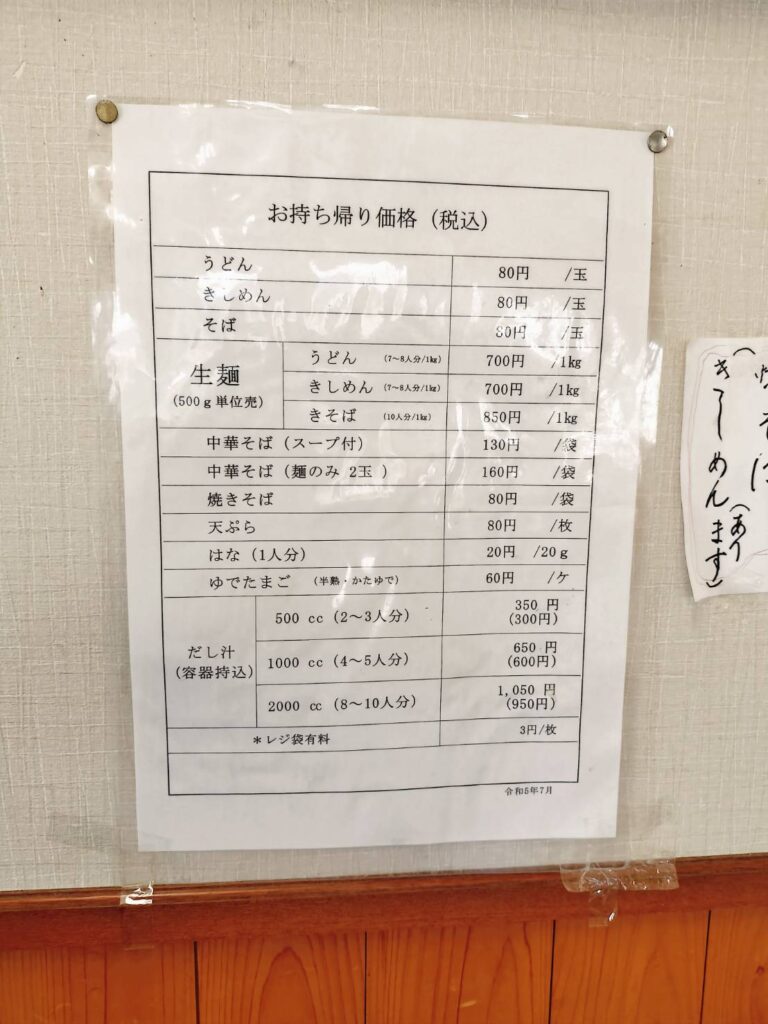 お持ち帰り価格（税込）
うどん 80円 /玉
きしめん 80円 /玉
そば 80円 /玉
生麺
(500g単位売)
うどん (7～8人分/1kg) 700円 /1kg
きしめん (7～8人分/1kg) 700円 /1kg
きそば (10人分/1kg) 850円 /1kg
中華そば（スープ付） 130円 /袋
中華そば（麺のみ 2玉 ） 160円 /袋
焼きそば 80円 /袋
天ぷら 80円 /枚
はな（1人分） 20円 /20g
ゆでたまご （半熟・かたゆで） 60円 /ケ
だし汁
（容器持込）
500 cc（2～3人分） 350 円
(300円)
1000 cc（4～5人分） 650 円
(600円)
2000 cc（8～10人分） 1,050 円
(950円)
＊レジ袋有料 3円/枚
令和5年7月
きしめん
(あります)